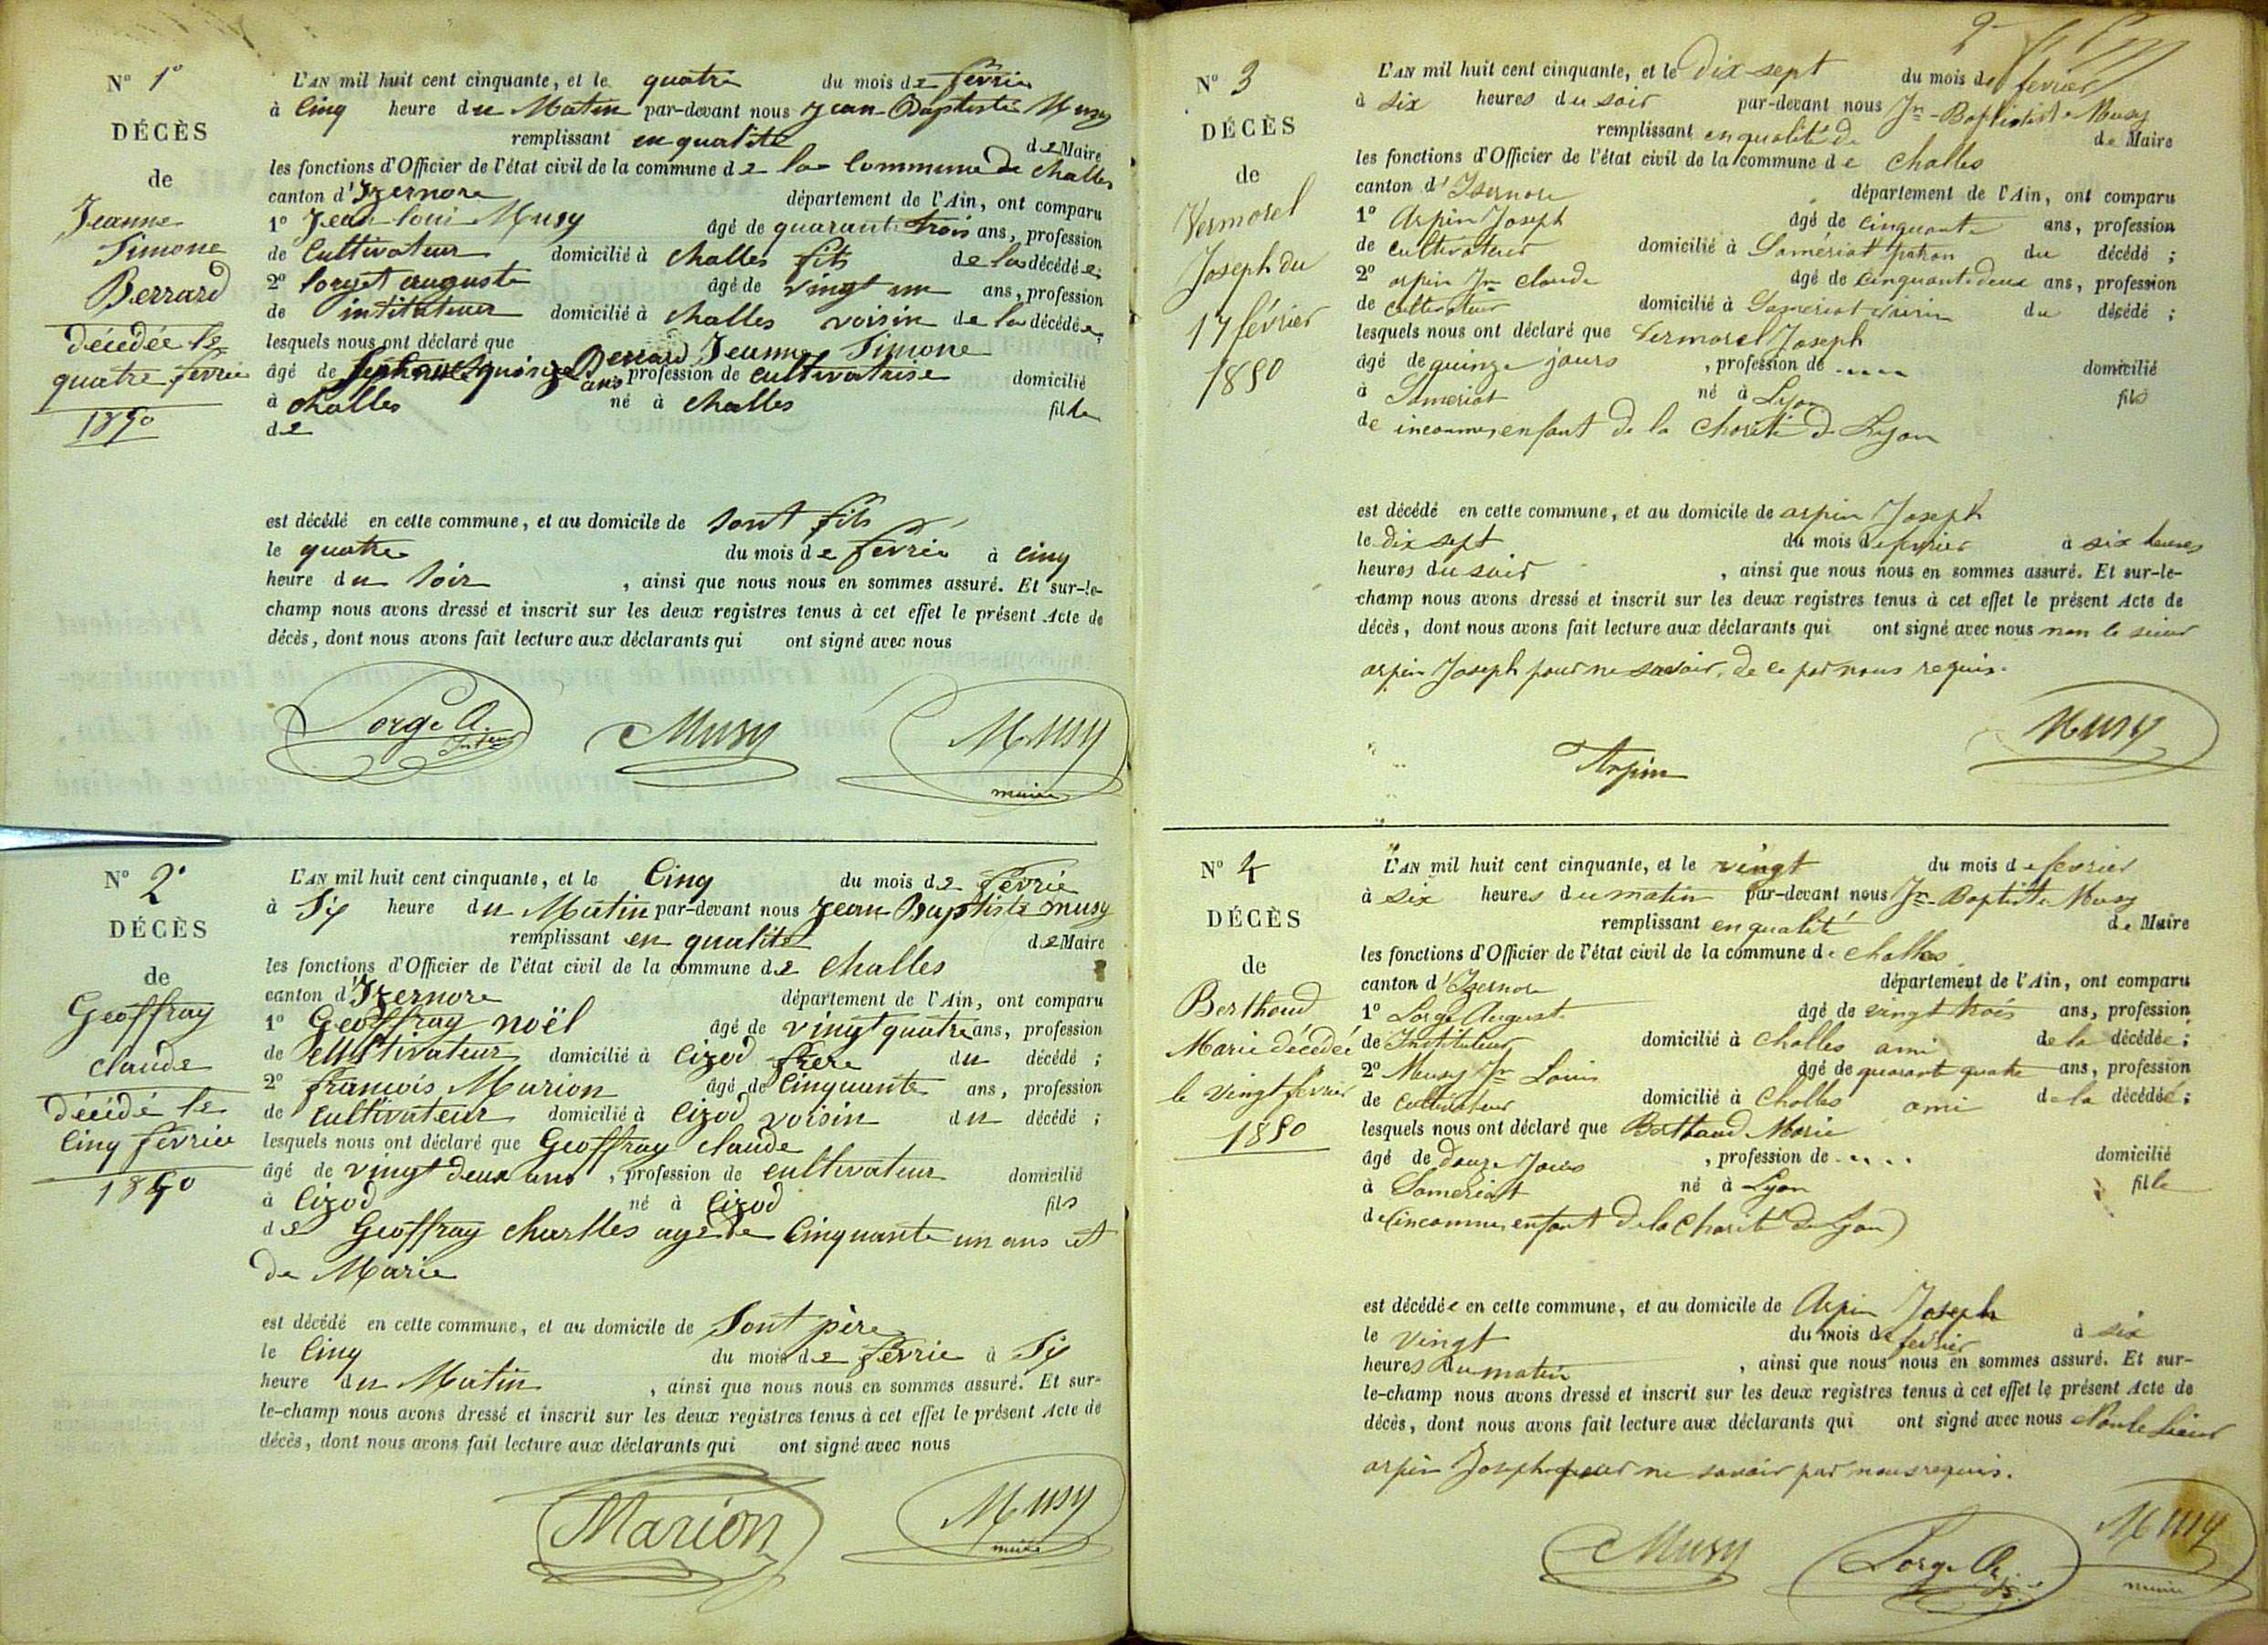 N° 1°
DÉCÈS
de
Jeanne
Simone
Berrard
décédée le
quatre fevrie
1850
L'AN mil huit cent cinquante, et le quatre du mois de fevrie
à Cinq heure du Matin par-devant nous Jean-Baptiste Musy
remplissant en qualité de Maire
les fonctions d'Officier de l'état civil de la commune de la Commune de Challes
canton d'Izernore département de l'Ain, ont comparu
1° Jean loui Musy âgé de quarante trois ans, profession
de Cultivateur domicilié à Challes fils de la décédée;
2° lorget auguste âgé de vingt un ans, profession
de intituteur domicilié à Challes voisin de la décédée;
lesquels nous ont déclaré que Berrard Jeanne Simone
âgé de ans profession de Cultivatrise domicilié
à Challes né à Challes fille
de
est décédé en cette commune, et au domicile de sont fils
le quatre du mois de fevrie à Cinq
heure du Soir , ainsi que nous nous en sommes assuré. Et sur-le-
champ nous avons dressé et inscrit sur les deux registres tenus à cet effet le présent Acte de
décès, dont nous avons fait lecture aux déclarants qui ont signé avec nous
Lorge A. Musy Musy
maire
N° 2°
DÉCÈS
de
Geoffray
Claude
décédé le
Cinq fevrie
1850
L'AN mil huit cent cinquante, et le Cinq du mois de fevrie
à Six heure du Matin par-devant nous Jean Baptiste musy
remplissant en qualité de Maire
les fonctions d'Officier de l'état civil de la commune de Challes
canton d'Izernore département de l'Ain, ont comparu
1° Geoffray noël âgé de vingt quatre ans, profession
de Cultivateur domicilié à Cizod frere du décédé;
2° francois Marion âgé de Cinquante ans, profession
de Cultivateur domicilié à Cizod voisin du décédé;
lesquels nous ont déclaré que Geoffray Claude
âgé de vingt deux ans, profession de cultivateur domicilié
à Cizod né à Cizod fils
de Geoffray Charlles age de Cinquante un ans et
de Marie
est décédé en cette commune, et au domicile de Sont père
le Cinq du mois de fevrie à Six
heure du Matin , ainsi que nous nous en sommes assuré. Et sur-
le-champ nous avons dressé et inscrit sur les deux registres tenus à cet effet le présent Acte de
décès, dont nous avons fait lecture aux déclarants qui ont signé avec nous
Marion Musy
maire
N° 3
DÉCÈS
de
Vermorel
Joseph du
17 février
1850
L'AN mil huit cent cinquante, et le dix-sept du mois de fevrier
à six heures du soir par-devant nous Jn-Baptiste Musy
remplissant en qualité de de Maire
les fonctions d'Officier de l'état civil de la commune de Challes
canton d'Isernore département de l'Ain, ont comparu
1° Arpin Joseph âgé de cinquante ans, profession
de cultivateur domicilié à Samériat patron du décédé;
2° arpin Jn claude âgé de cinquante deux ans, profession
de cultivateur domicilié à Samériat voisin du décédé;
lesquels nous ont déclaré que Vermorel Joseph
âgé de quinze jours , profession de .... domicilié
à Sameriat né à Lyon fils
de inconnu, enfant de la Charité de Lyon
est décédé en cette commune, et au domicile de arpin Joseph
le dix sept du mois de fevrier à six heures
heures du soir , ainsi que nous nous en sommes assuré. Et sur-le-
champ nous avons dressé et inscrit sur les deux registres tenus à cet effet le présent Acte de
décès, dont nous avons fait lecture aux déclarants qui ont signé avec nous non le sieur
arpin Joseph pour ne savoir, de ce par nous requis.
Arpin Musy
N° 4
DÉCÈS
de
Berthoud
Marie décédée
le vingt fevrier
1850
L'AN mil huit cent cinquante, et le vingt du mois de fevrier
à six heures du matin par-devant nous Jn-Baptiste Musy
remplissant en qualité de Maire
les fonctions d'Officier de l'état civil de la commune de Challes
canton d'Isernore département de l'Ain, ont comparu
1° Lorge Auguste âgé de vingt trois ans, profession
de Instituteur domicilié à Challes ami de la décédée;
2° Musy Jn Louis âgé de quarante quatre ans, profession
de cultivateur domicilié à Challes ami de la décédée;
lesquels nous ont déclaré que Berthaud Marie
âgé de douze jours , profession de .... domicilié
à Sameriat né à Lyon fille
de (inconnu, enfant de la Charité de Lyon)
est décédée en cette commune, et au domicile de Arpin Joseph
le vingt du mois de fevrier à six
heures du matin , ainsi que nous nous en sommes assuré. Et sur-
le-champ nous avons dressé et inscrit sur les deux registres tenus à cet effet le présent Acte de
décès, dont nous avons fait lecture aux déclarants qui ont signé avec nous Non le Sieur
arpin Joseph pour ne savoir par nous requis.
Musy Lorge A. Musy
maire